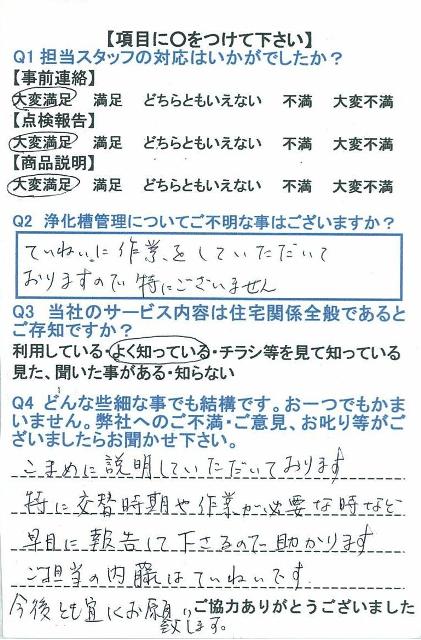 【項目に〇をつけて下さい】
Q1 担当スタッフの対応はいかがでしたか？
【事前連絡】
大変満足 満足 どちらともいえない 不満 大変不満
【点検報告】
大変満足 満足 どちらともいえない 不満 大変不満
【商品説明】
大変満足 満足 どちらともいえない 不満 大変不満
Q2 浄化槽管理についてご不明な事はございますか？
ていねいに作業をしていただいて
おりますので特にございません
Q3 当社のサービス内容は住宅関係全般であると
ご存知ですか？
利用している・よく知っている・チラシ等を見て知っている
見た、聞いた事がある・知らない
Q4 どんな些細な事でも結構です。お一つでもかま
いません。弊社へのご不満・ご意見、お叱り等がご
ざいましたらお聞かせ下さい。
こまめに説明していただいております
特に交替時期や作業が必要な時など
早目に報告して下さるので助かります
ご担当の内藤はていねいです
今後とも宜しくお願い
致します。
ご協力ありがとうございました